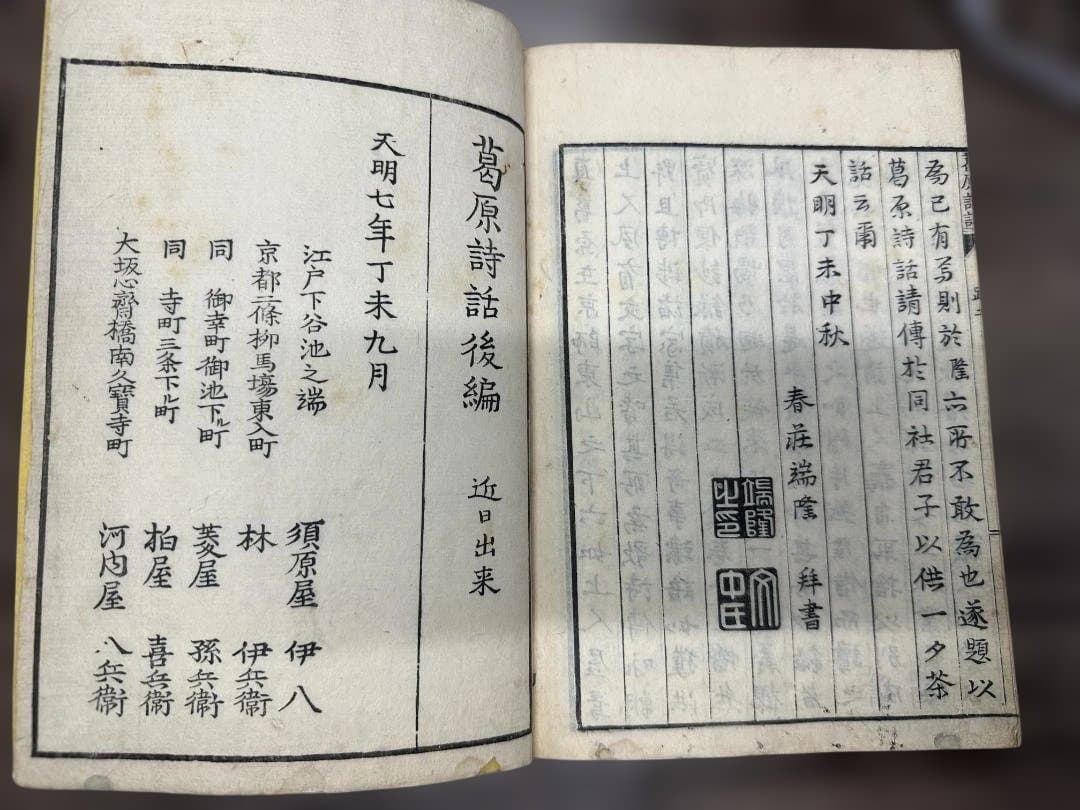 為已有焉則於隆亦所不敢為也遂題以
葛原詩話請傳於同社君子以供一夕茶
話云爾
天明丁未中秋
春莊端隆 拜書
端隆之印
文中氏
葛原詩話後編 近日出来
天明七年丁未九月
江戸下谷池之端 須原屋 伊八
京都二條柳馬塲東入町 林 伊兵衞
同 御幸町御池下ル町 菱屋 孫兵衞
同 寺町三条下ル町 柏屋 喜兵衞
大坂心齋橋南久寳寺町 河内屋 八兵衞